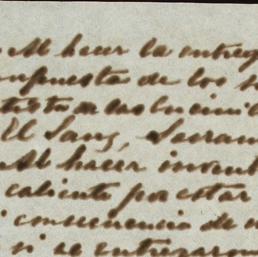 Al hacer la entreg
ompuesta de los s
de las
El Sanz, Secram
Al hacer invent
caliente por estar
consecuencia de
si se entregaron